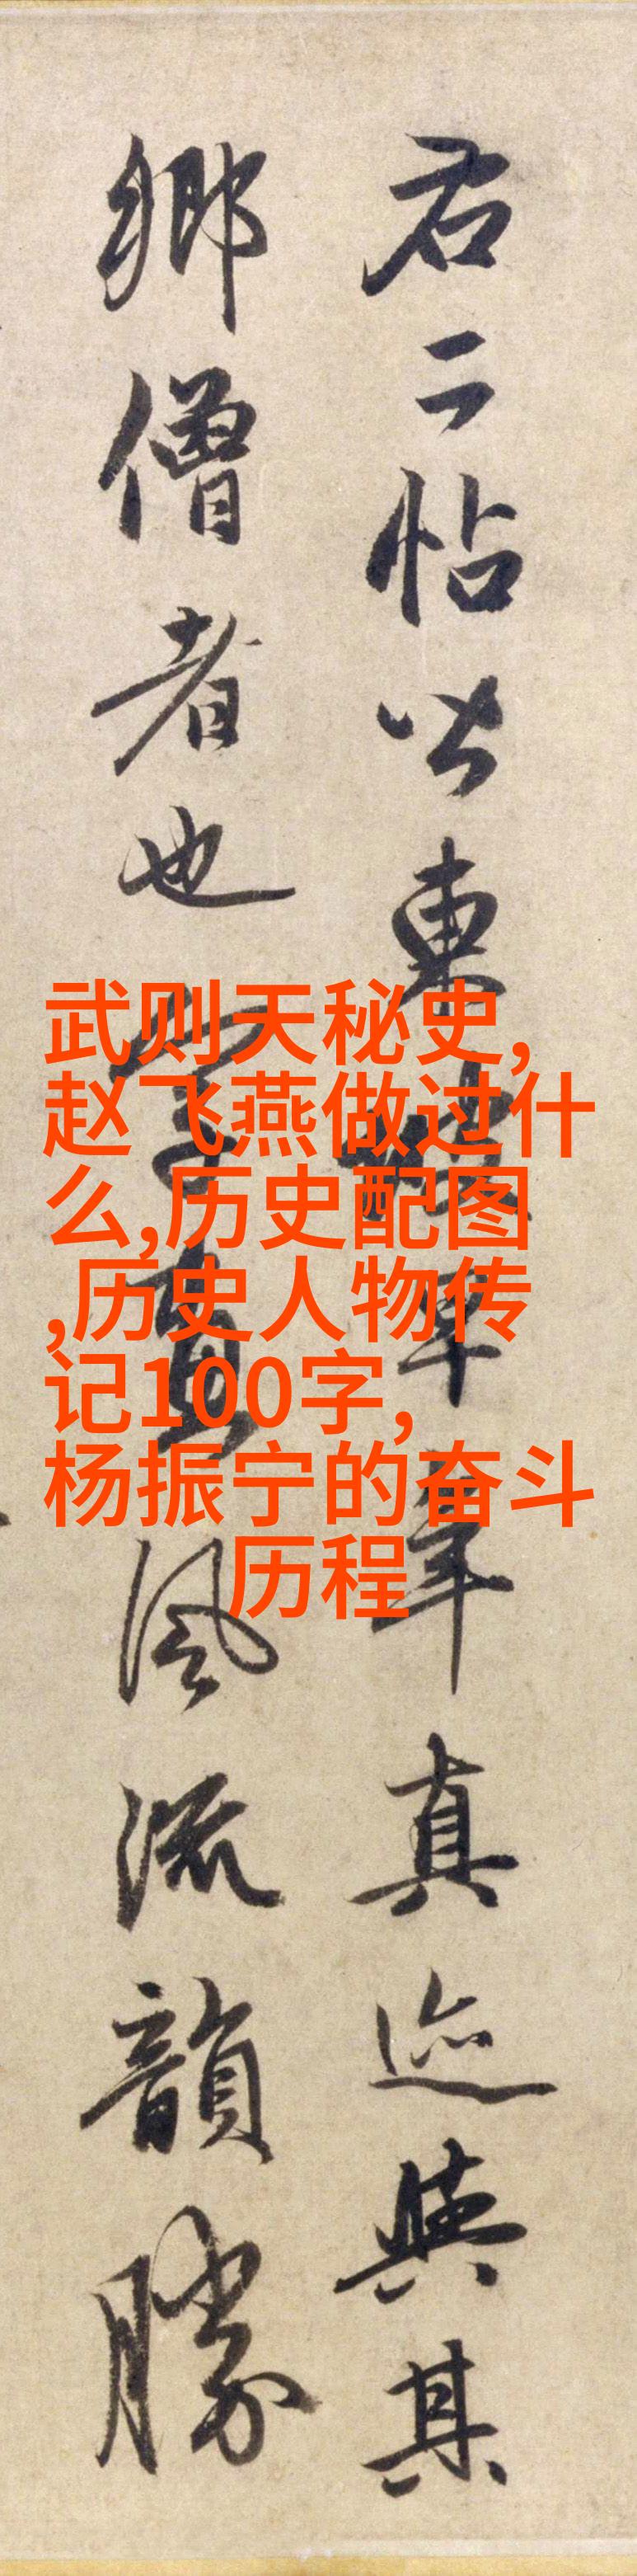 右二帖皆東坡早年真迹與其
鄉僧者也字畫風流韻勝
武则天秘史,
赵飞燕做过什
么,历史配图
,历史人物传
记100字,
杨振宁的奋斗
历程